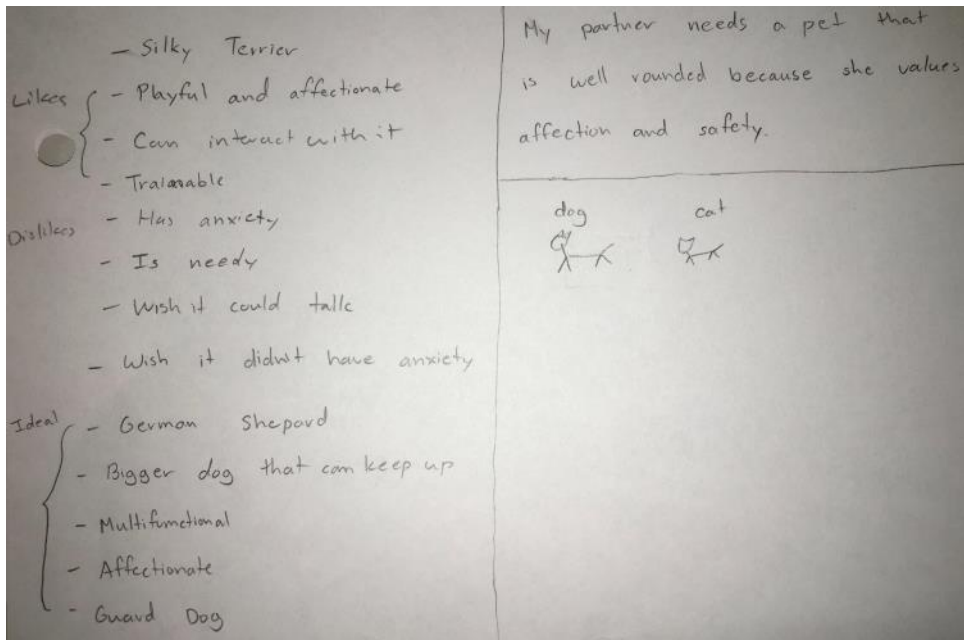 - Silky Terrier
Likes - Playful and affectionate
- Can interact with it
- Trainable
Dislikes - Has anxiety
- Is needy
- Wish it could talk
- Wish it didn't have anxiety
Ideal - German Shepard
- Bigger dog that can keep up
- Multifunctional
- Affectionate
- Guard Dog
My partner needs a pet that
is well rounded because she values
affection and safety.
dog cat